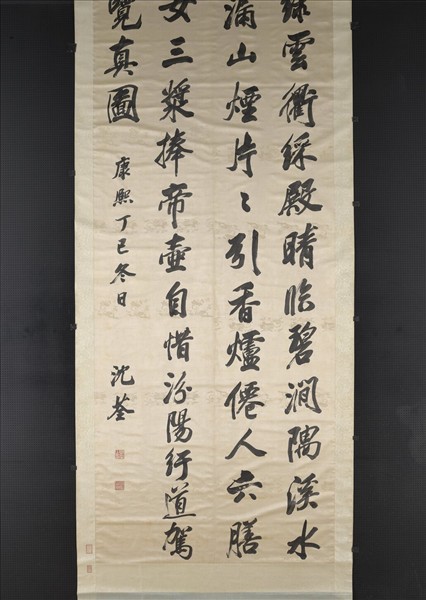 綠雲衢綵殿晴臨碧澗隅溪水
漏山煙片〻引香爐僊人六膳
女三漿捧帝壺自惜汾陽紆道駕
覽真圖
康熙丁巳冬日
沈荃